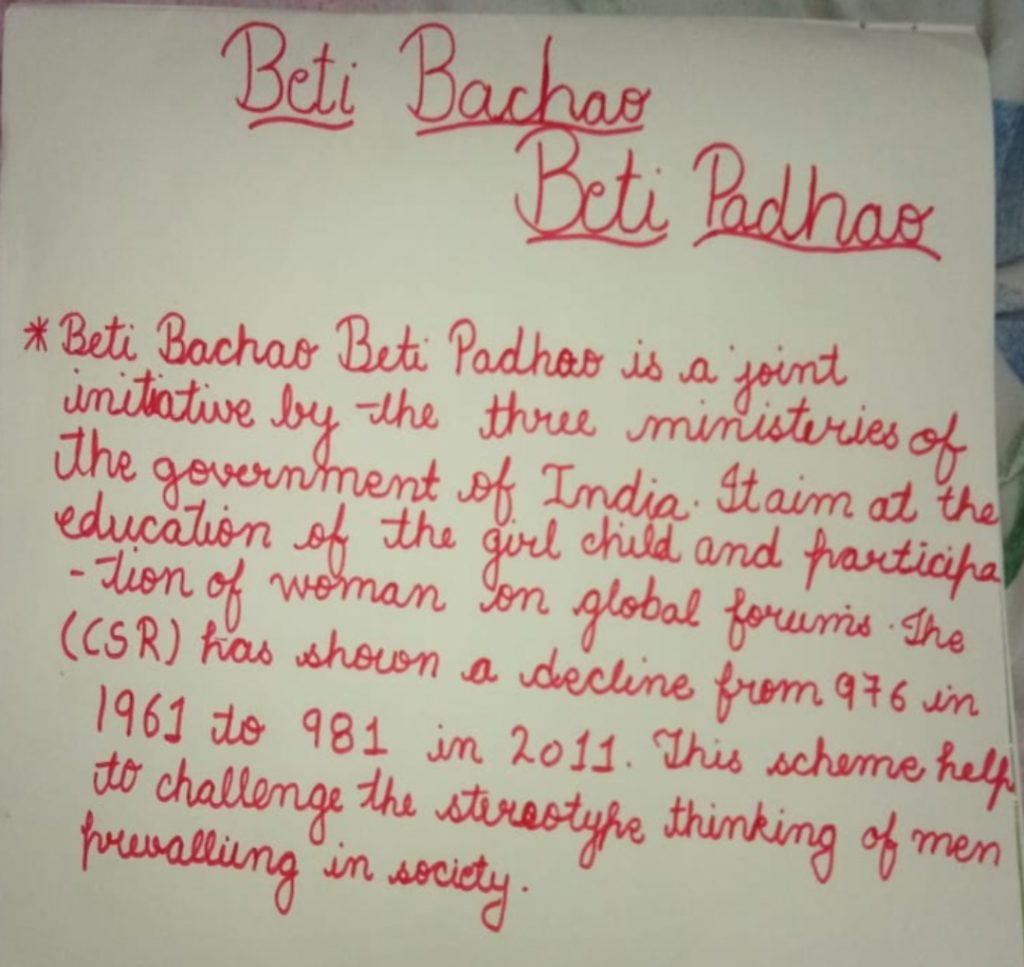 Beti Bachao
Beti Padhao
* Beti Bachao Beti Padhao is a joint
initiative by the three ministeries of
the government of India. It aim at the
education of the girl child and participa
-tion of woman on global forums. The
(CSR) has shown a decline from 976 in
1961 to 981 in 2011. This scheme help
to challenge the stereotype thinking of men
prevalliing in society.